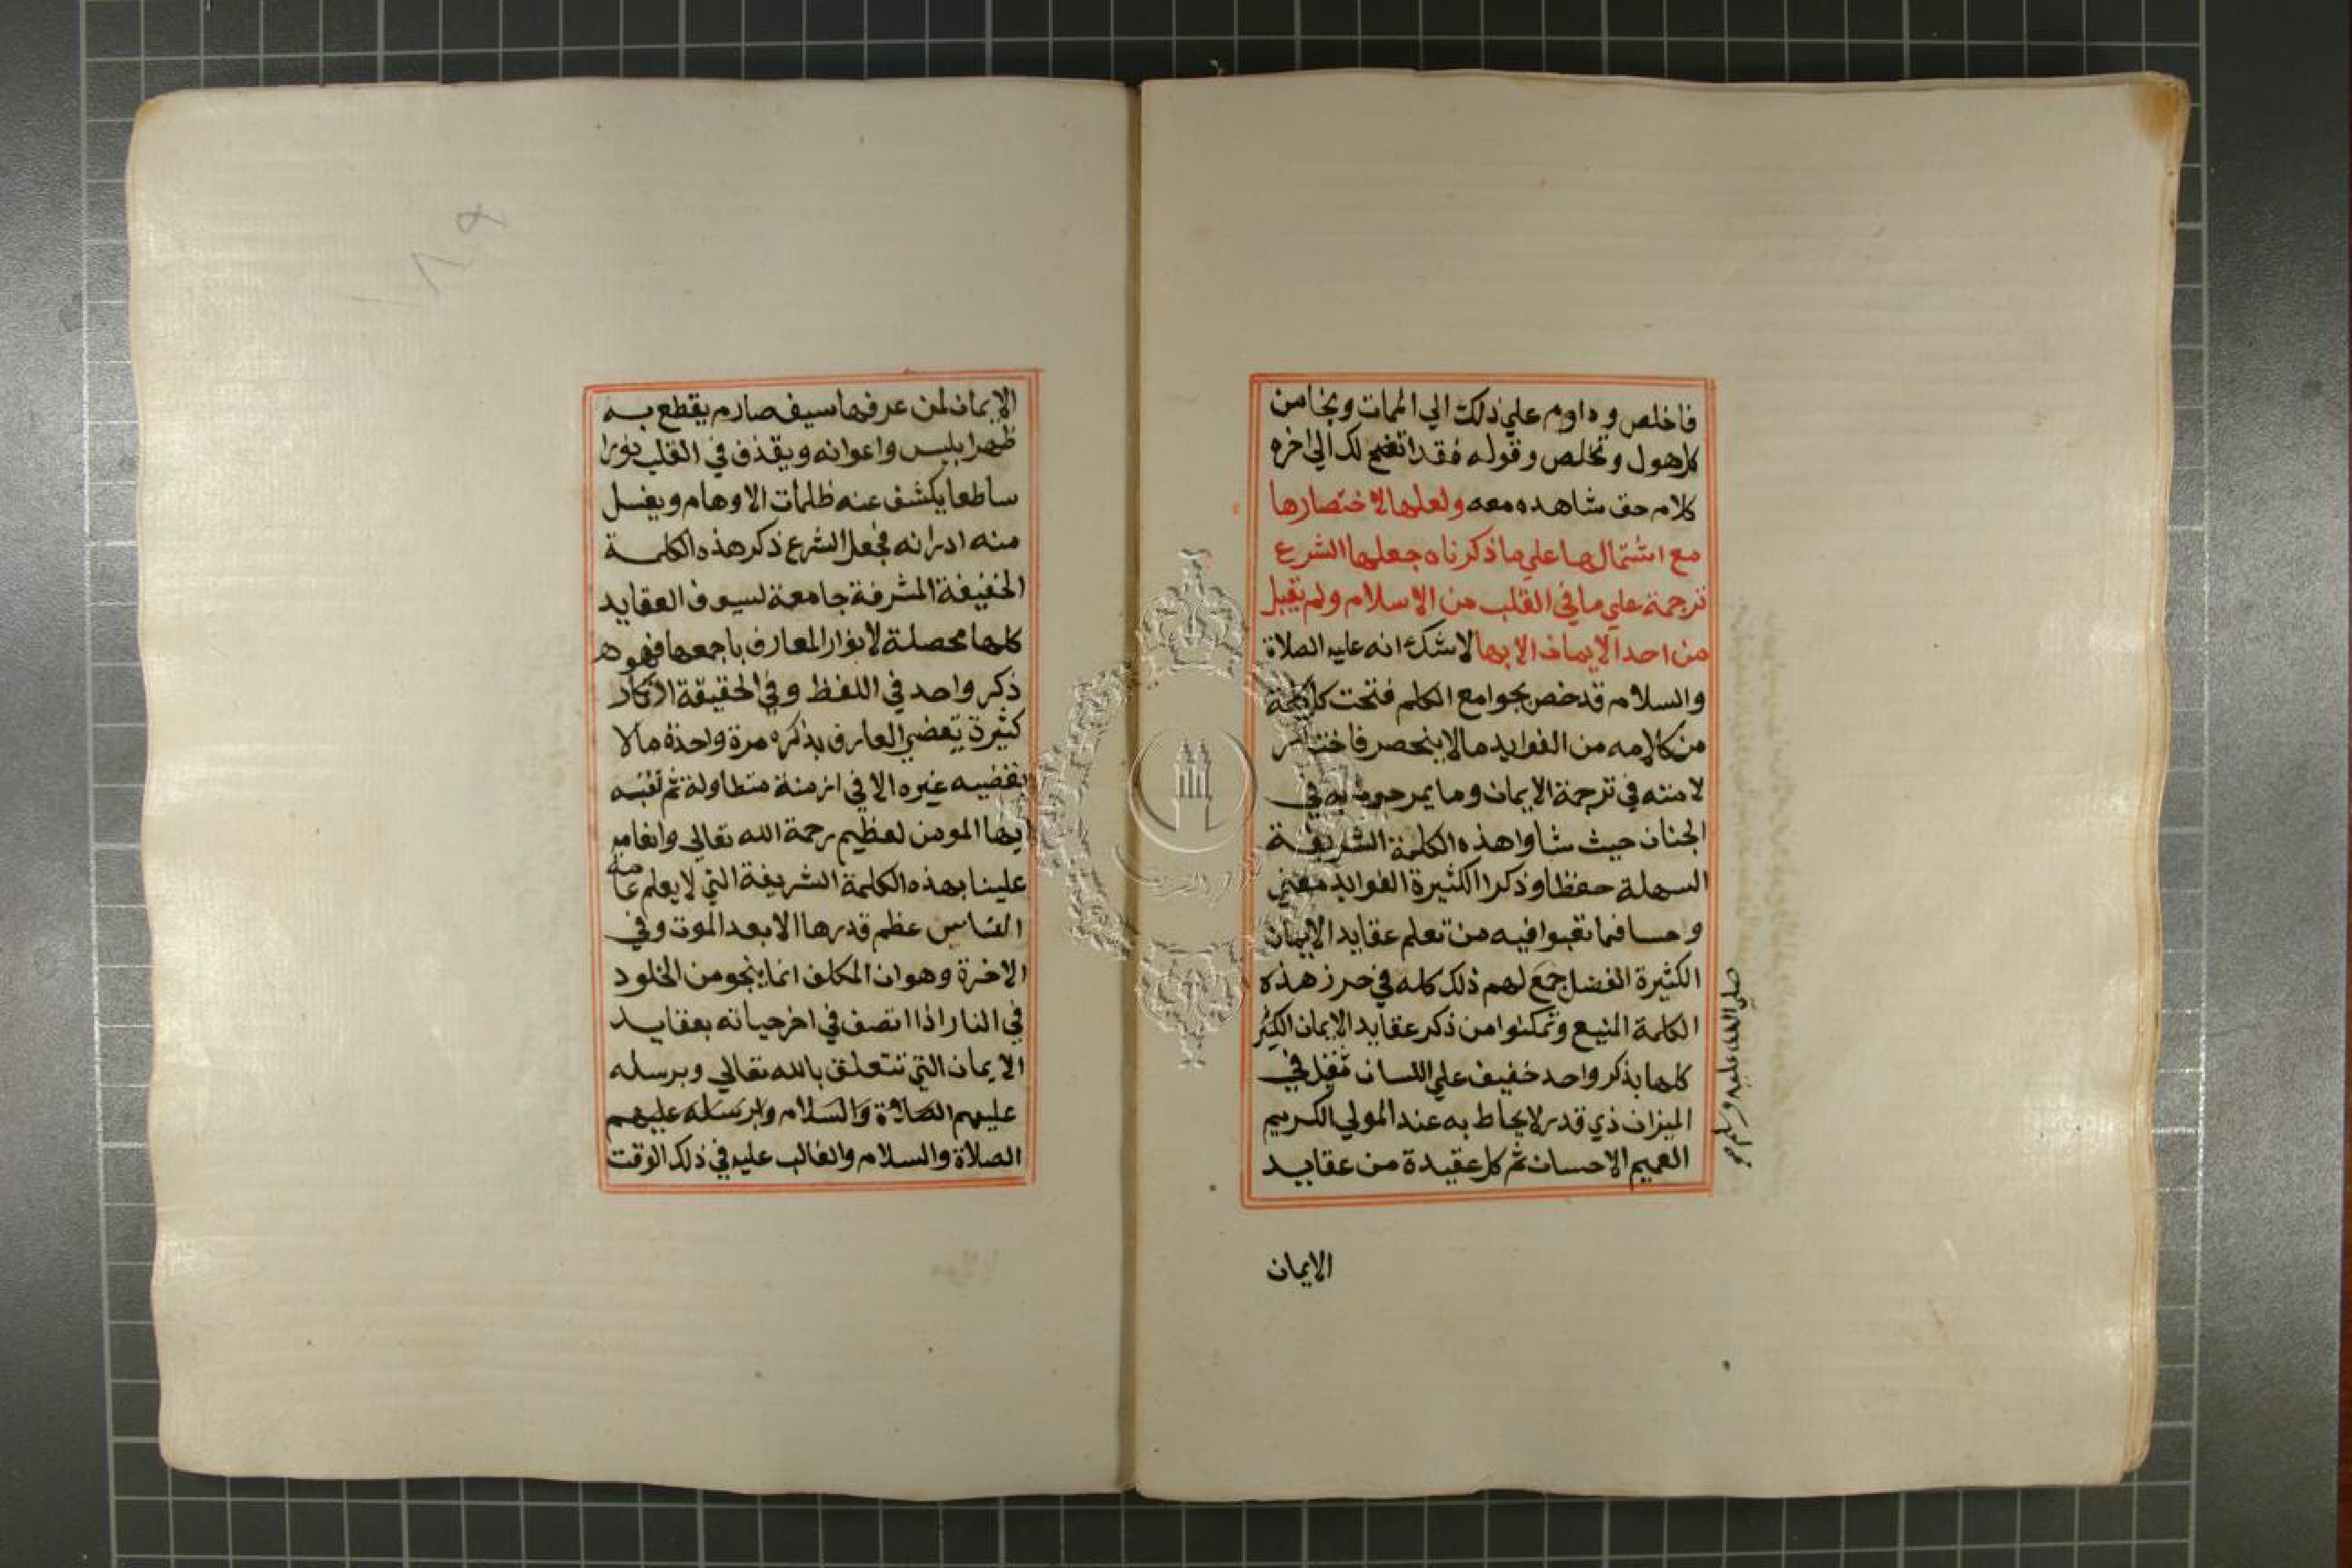 فاخلص وداوم علي ذلك الي الممات ونجا من
كل هول وتخلص وقوله فقد اتضح لك الي اخره
كلام حق شاهده معه ولعلها لاختصارها
مع اشتمالها علي ما ذكرناه جعلها الشرع
ترجمة علي ما في القلب من الاسلام ولم يقبل
من احد الايمان الا بها لا شك انه عليه الصلاة
والسلام قد خص بجوامع الكلم فتحت كل كلمة
من كلامه من الفوايد ما لا ينحصر فاختار
لامته في ترجمة الايمان وما يمرحون به في
الجنان حيث شاوا هذه الكلمة الشريفة
السهلة حفظا وذكرا الكثيرة الفوايد معني
وحسا فما تعبوا فيه من تعلم عقايد الايمان
الكثيرة الفضل جمع لهم ذلك كله في حرز هذه
الكلمة المنيع وتمكنوا من ذكر عقايد الايمان الكثير
كلها بذكر واحد خفيف علي اللسان ثقيل في
الميزان ذي قدر لا يحاط به عند المولي الكريم
العميم الاحسان ثم كل عقيدة من عقايد
صلي الله عليه وسلم
الايمان
الايمان لمن عرفها سيف صارم يقطع به
ظهر ابليس واعوانه ويقذف في القلب نورا
ساطعا يكشف عنه ظلمات الاوهام ويغسل
منه ادرانه فجعل الشرع ذكر هذه الكلمة
الخفيفة المشرفة جامعة لسيوف العقايد
كلها محصلة لانوار المعارف باجمعها فهو
ذكر واحد في اللفظ وفي الحقيقة اذكار
كثيرة يقضي العارف بذكره مرة واحدة ما لا
يقضيه غيره الا في ازمنة متطاولة ثم تنبه
ايها المومن لعظيم رحمة الله تعالي وانعامه
علينا بهذه الكلمة الشريفة التي لا يعلم عامة
الناس عظم قدرها الا بعد الموت وفي
الاخرة وهو ان المكلف انما ينجو من الخلود
في النار اذا اتصف في اخر حياته بعقايد
الايمان التي تتعلق بالله تعالي وبرسله
عليهم الصلاة والسلام وابرسله عليهم
الصلاة والسلام والغالب عليه في ذلك الوقت